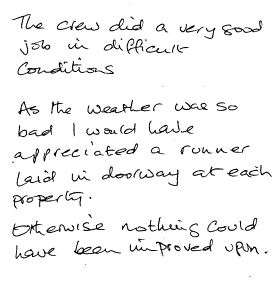 The crew did a very good
job in difficult
Conditions
As the weather was so
bad I would have
appreciated a runner
laid in doorway at each
property.
Otherwise nothing could
have been improved upon.